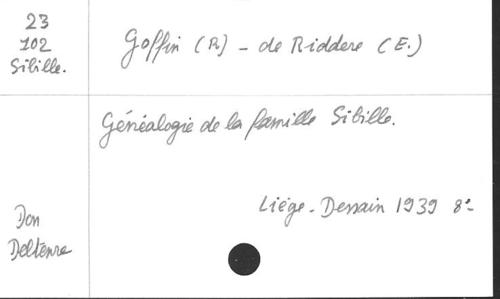 23
102
Sibille.
Goffin (R) - de Riddere (E.)
Généalogie de la famille Sibille.
Liége - Dessain 1939 8°-
Don
Deltenre